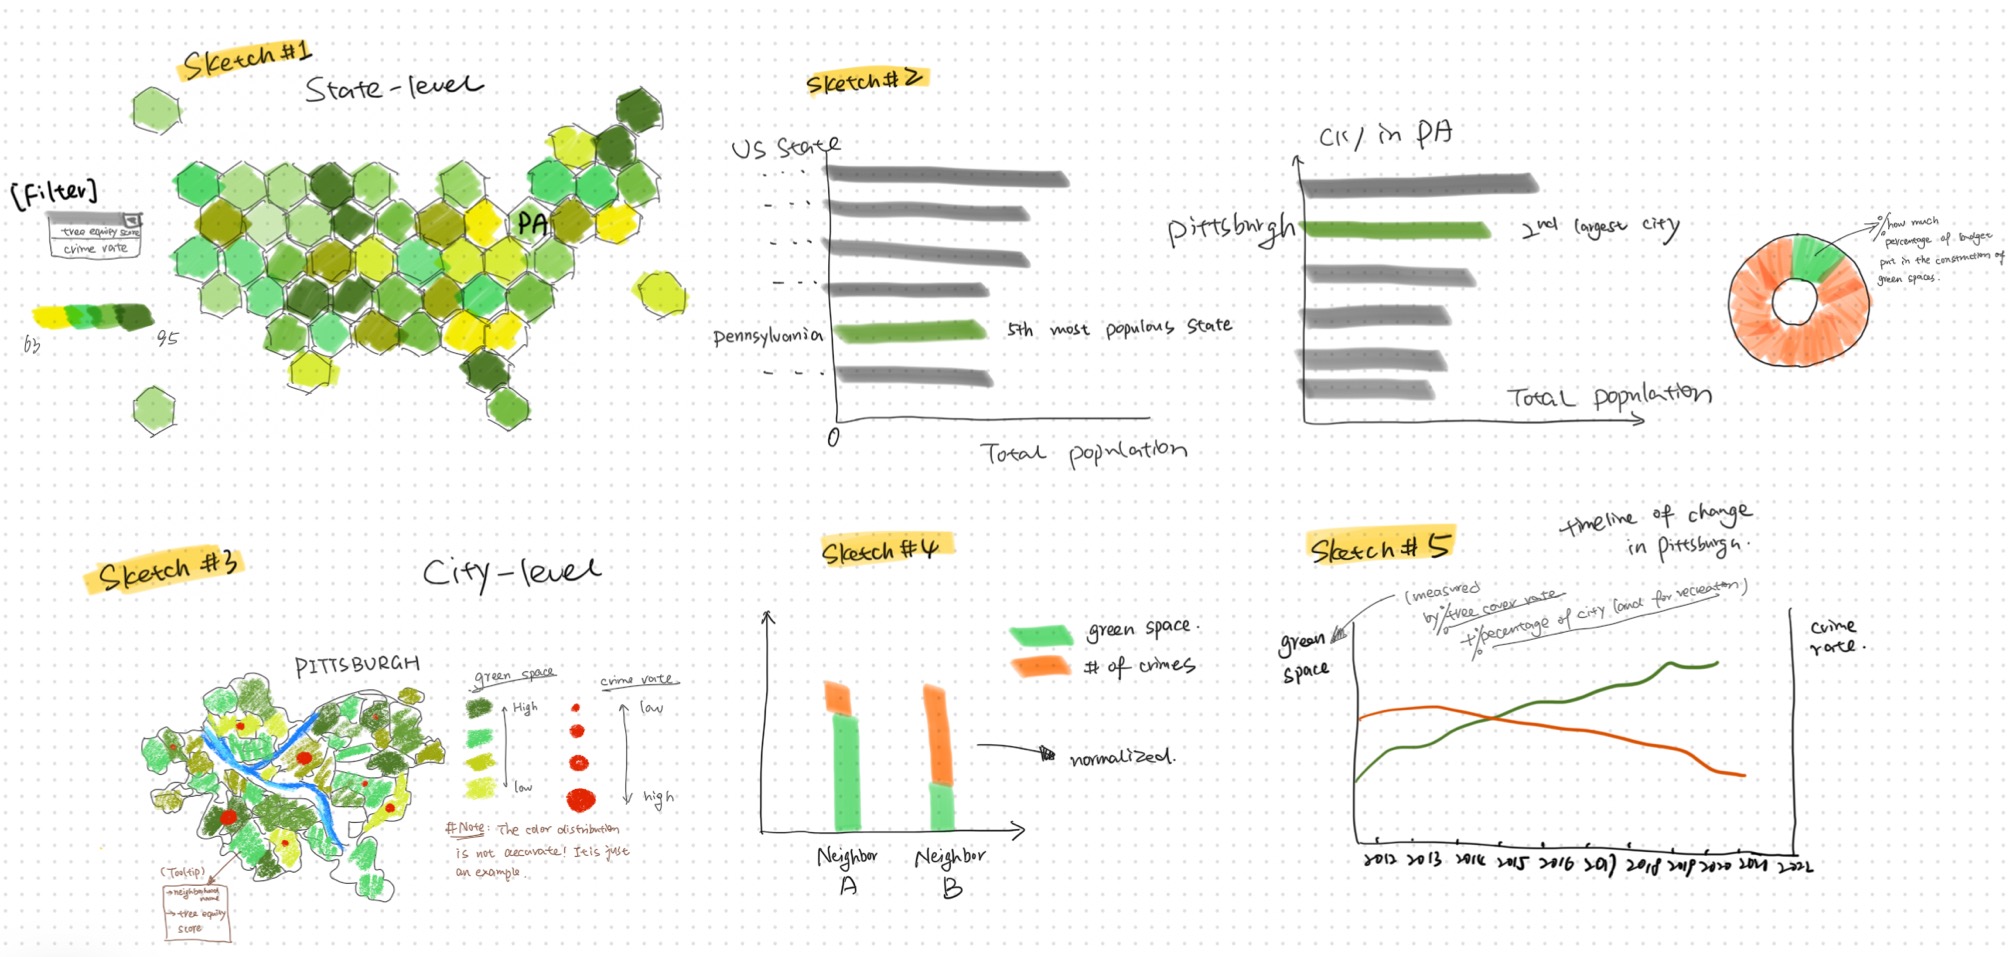 Sketch #1
State-level
[Filter]
tree equity score
crime rate
63
95
PA
Sketch #2
US State
Pennsylvania
5th most populous state
0
Total population
City in PA
Pittsburgh
2nd largest city
Total population
% how much
percentage of budget
put in the construction of
green spaces.
Sketch #3
City-level
PITTSBURGH
green space
High
low
crime rate
low
high
#Note: The color distribution
is not accurate! It is just
an example.
(Tooltip)
→ neighborhood
name
→ tree equity
score
Sketch #4
green space.
# of crimes
normalized.
Neighbor
A
Neighbor
B
Sketch #5
timeline of change
in Pittsburgh.
(measured
by % tree cover rate
+ % pecentage of city land for recreation)
green
space
crime
rate.
2012 2013 2014 2015 2016 2017 2018 2019 2020 2021 2022